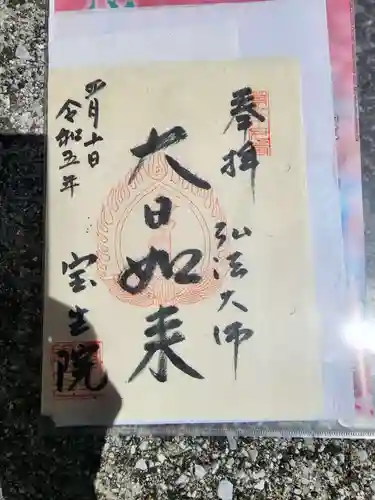 奉拝
弘法大師
大日如来
令和五年
四月十日
宝生院